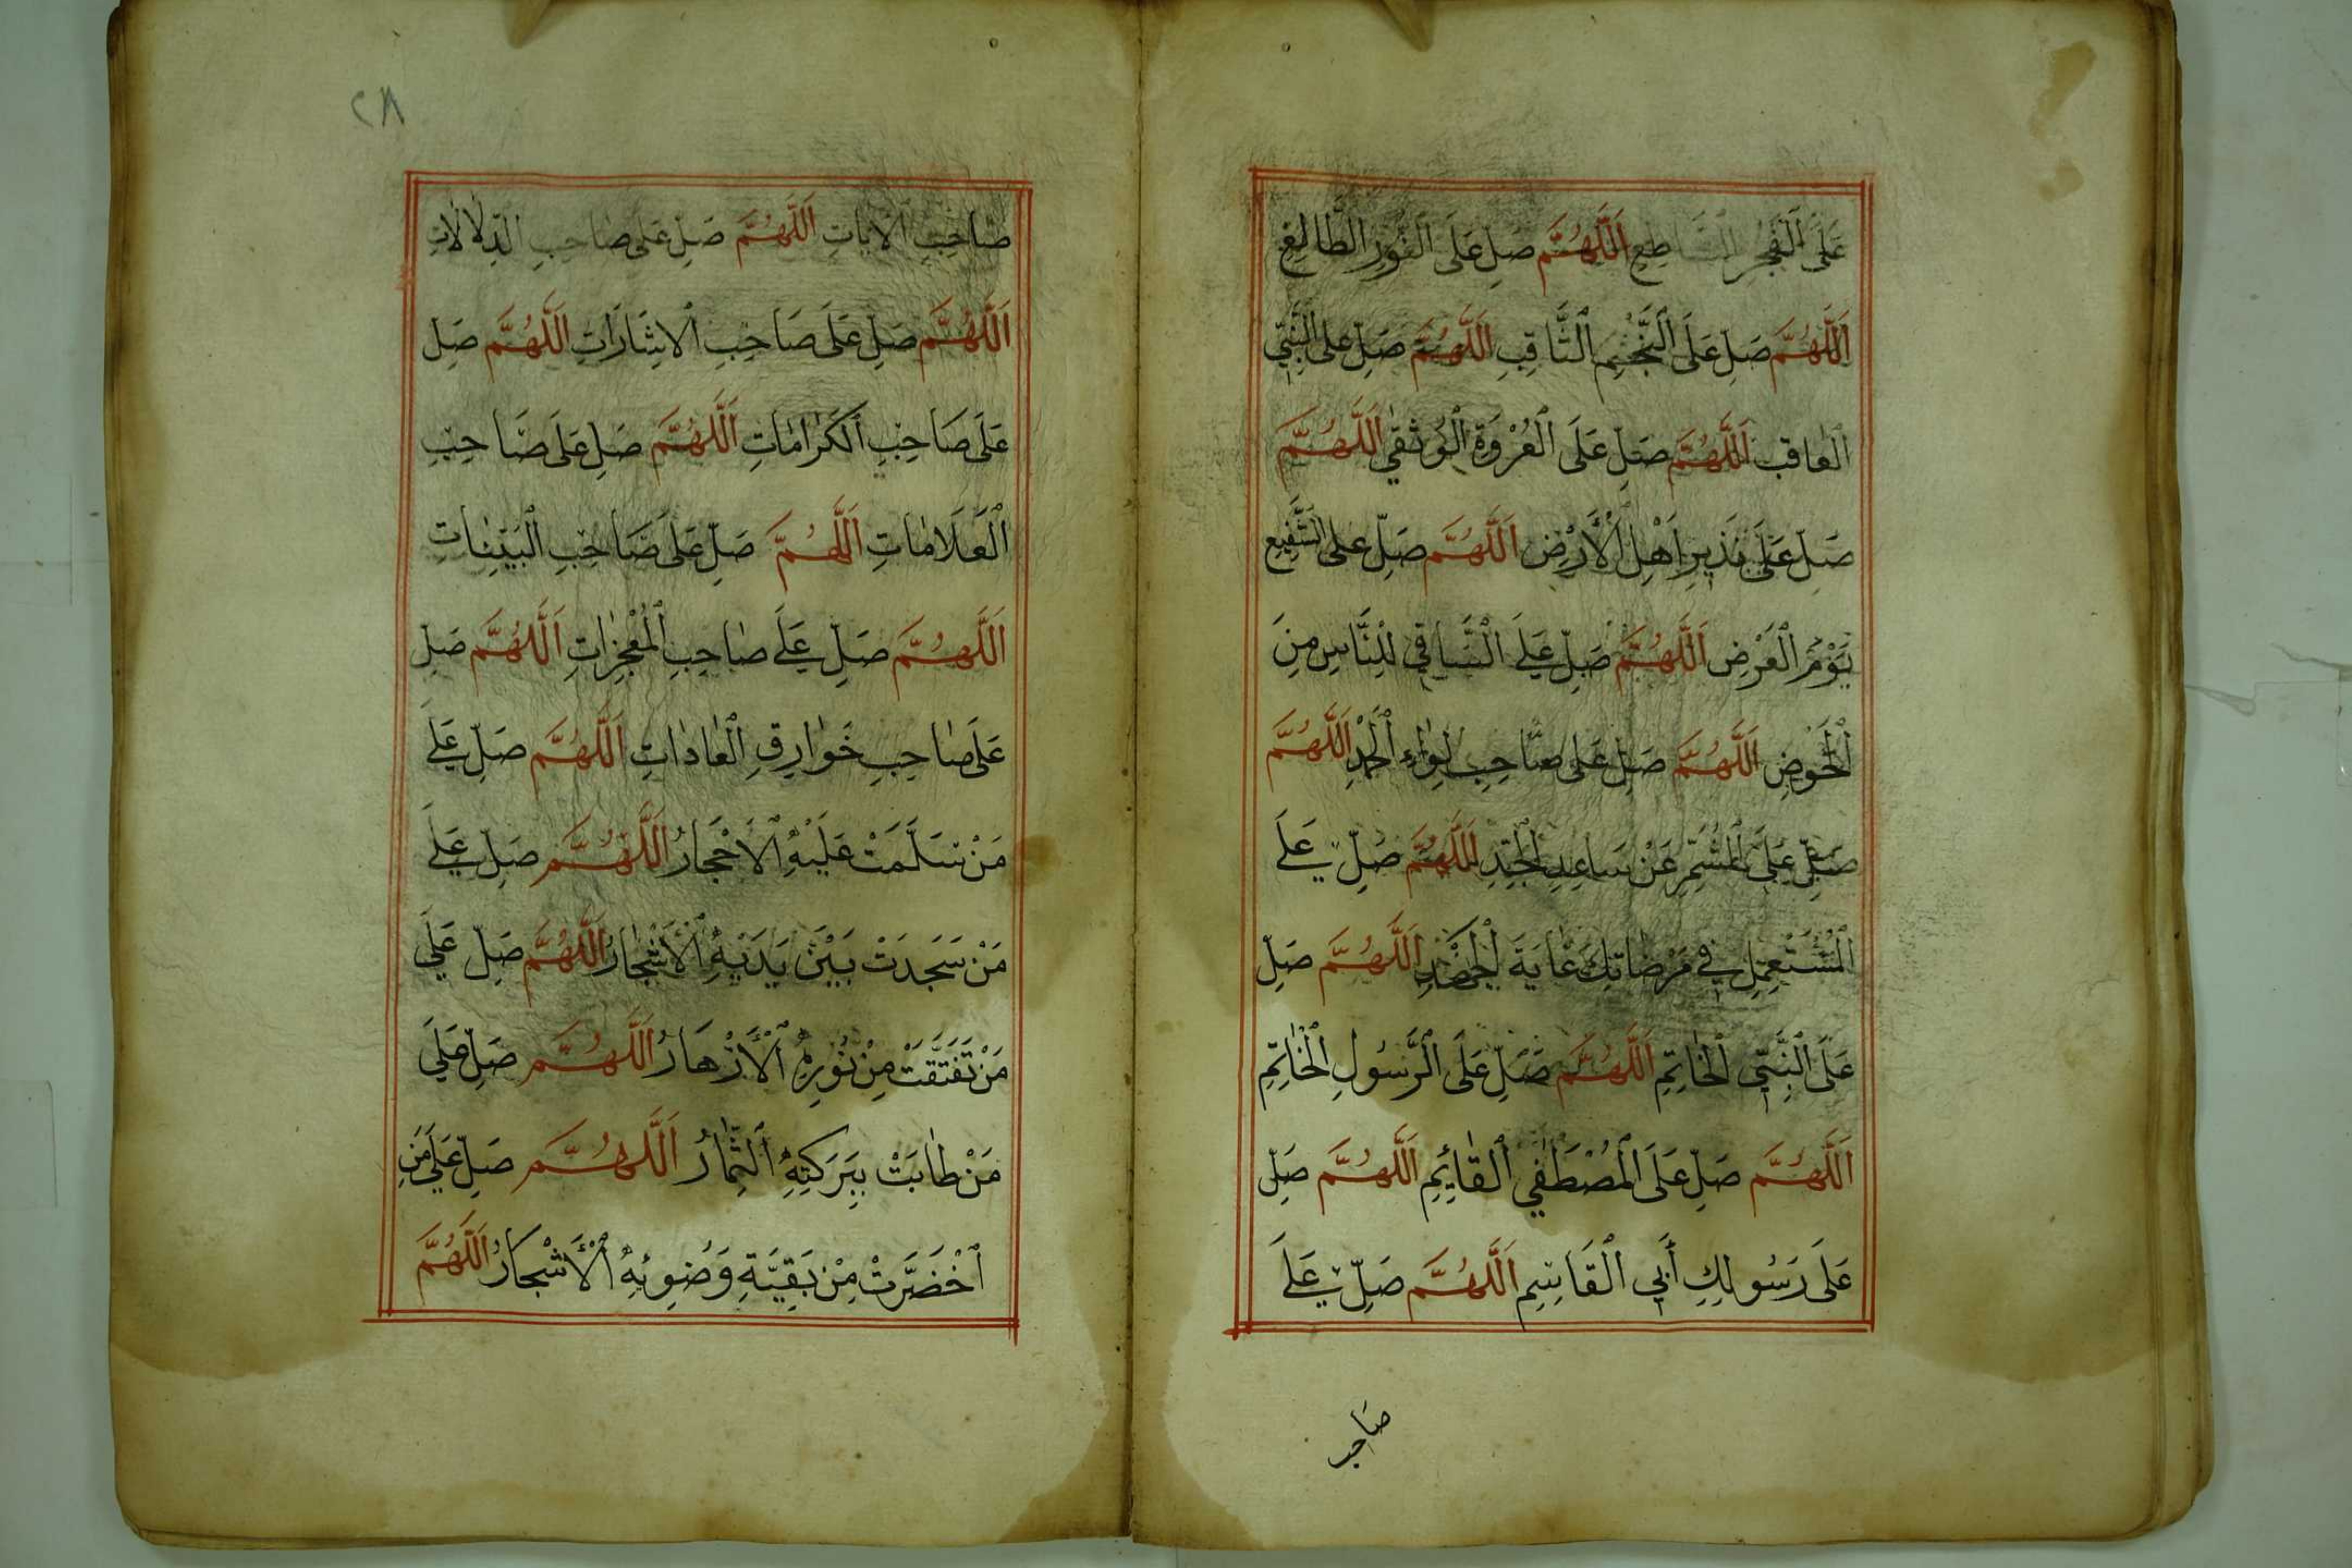 عَلَى الْفَجْرِ السَّاطِعِ اَللَّهُمَّ صَلِّ عَلَى النُّورِ الطَّالِعِ
اَللَّهُمَّ صَلِّ عَلَى النَّجْمِ الثَّاقِبِ اَللَّهُمَّ صَلِّ عَلَى النَّبِيِّ
الْعَاقِبِ اَللَّهُمَّ صَلِّ عَلَى الْعُرْوَةِ الْوُثْقٰى اَللَّهُمَّ
صَلِّ عَلَى نَذِيرِ اَهْلِ الْأَرْضِ اَللَّهُمَّ صَلِّ عَلَى الشَّفِيعِ
يَوْمَ الْعَرْضِ اَللَّهُمَّ صَلِّ عَلَى السَّاقِي لِلنَّاسِ مِنَ
الْحَوْضِ اَللَّهُمَّ صَلِّ عَلَى صَاحِبِ لِوَاءِ الْحَمْدِ اَللَّهُمَّ
صَلِّ عَلَى الْمُشَمِّرِ عَنْ سَاعِدِ الْجِدِّ اَللَّهُمَّ صَلِّ عَلَى
الْمُسْتَعْمِلِ فِي مَرْضَاتِكَ غَايَةَ الْجَهْدِ اَللَّهُمَّ صَلِّ
عَلَى النَّبِيِّ الْخَاتِمِ اَللَّهُمَّ صَلِّ عَلَى الرَّسُولِ الْخَاتِمِ
اَللَّهُمَّ صَلِّ عَلَى الْمُصْطَفَى الْقَائِمِ اَللَّهُمَّ صَلِّ
عَلَى رَسُولِكَ أَبِي الْقَاسِمِ اَللَّهُمَّ صَلِّ عَلَى
صَاحِبِ
٢٨
صَاحِبِ الْاٰيَاتِ اَللَّهُمَّ صَلِّ عَلَى صَاحِبِ الدَّلَالَاتِ
اَللَّهُمَّ صَلِّ عَلَى صَاحِبِ الْاِشَارَاتِ اَللَّهُمَّ صَلِّ
عَلَى صَاحِبِ الْكَرَامَاتِ اَللَّهُمَّ صَلِّ عَلَى صَاحِبِ
الْعَلَامَاتِ اَللَّهُمَّ صَلِّ عَلَى صَاحِبِ الْبَيِّنَاتِ
اَللَّهُمَّ صَلِّ عَلَى صَاحِبِ الْمُعْجِزَاتِ اَللَّهُمَّ صَلِّ
عَلَى صَاحِبِ خَوَارِقِ الْعَادَاتِ اَللَّهُمَّ صَلِّ عَلَى
مَنْ سَلَّمَتْ عَلَيْهِ الْاَحْجَارُ اَللَّهُمَّ صَلِّ عَلَى
مَنْ سَجَدَتْ بَيْنَ يَدَيْهِ الْأَشْجَارُ اَللَّهُمَّ صَلِّ عَلَى
مَنْ تَفَتَّقَتْ مِنْ نُورِهِ الْأَزْهَارُ اَللَّهُمَّ صَلِّ عَلَى
مَنْ طَابَتْ بِبَرَكَتِهِ الثِّمَارُ اَللَّهُمَّ صَلِّ عَلَى مَنِ
اخْضَرَّتْ مِنْ بَقِيَّةِ وَضُوئِهِ الْأَشْجَارُ اَللَّهُمَّ